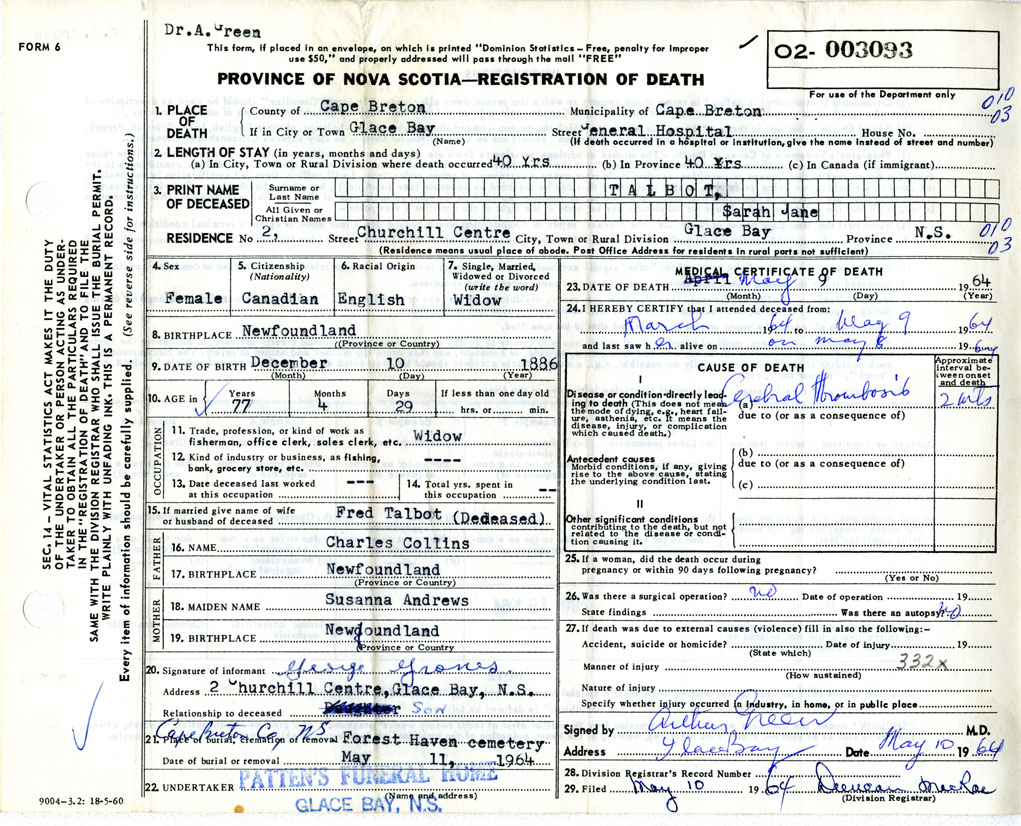 Dr.A.Green
FORM 6
This form, if placed in an envelope, on which is printed "Dominion Statistics – Free, penalty for improper
use $50," and properly addressed will pass through the mail "FREE"
PROVINCE OF NOVA SCOTIA—REGISTRATION OF DEATH
02- 003093
For use of the Department only
010
03
1. PLACE OF DEATH
County of Cape Breton Municipality of Cape Breton
If in City or Town Glace Bay Street General Hospital House No.
(Name) (If death occurred in a hospital or institution, give the name instead of street and number)
2. LENGTH OF STAY (in years, months and days)
(a) In City, Town or Rural Division where death occurred 40 Yrs (b) In Province 40 Yrs (c) In Canada (if immigrant)
3. PRINT NAME OF DECEASED
Surname or Last Name TALBOT,
All Given or Christian Names Sarah Jane
RESIDENCE No 2, Street Churchill Centre City, Town or Rural Division Glace Bay Province N.S.
010
03
(Residence means usual place of abode. Post Office Address for residents in rural parts not sufficient)
4. Sex
Female
5. Citizenship
(Nationality)
Canadian
6. Racial Origin
English
7. Single, Married,
Widowed or Divorced
(write the word)
Widow
8. BIRTHPLACE Newfoundland
(Province or Country)
9. DATE OF BIRTH December 10 1886
(Month) (Day) (Year)
10. AGE in Years Months Days If less than one day old
77 4 29 hrs. or min.
OCCUPATION
11. Trade, profession, or kind of work as
fisherman, office clerk, sales clerk, etc. Widow
12. Kind of industry or business, as fishing,
bank, grocery store, etc. ----
13. Date deceased last worked
at this occupation ----
14. Total yrs. spent in
this occupation --
15. If married give name of wife
or husband of deceased Fred Talbot (Dedeased)
FATHER
16. NAME Charles Collins
17. BIRTHPLACE Newfoundland
(Province or Country)
MOTHER
18. MAIDEN NAME Susanna Andrews
19. BIRTHPLACE Newfoundland
(Province or Country)
20. Signature of informant George
Address 2 Churchill Centre, Glace Bay, N.S.
Relationship to deceased Daughter Son
Cape Breton Co. NS
21. Place of burial, cremation or removal Forest Haven cemetery
Date of burial or removal May 11, 1964
22. UNDERTAKER PATTEN'S FUNERAL HOME
(Name and address)
GLACE BAY, N.S.
9004–3.2: 18-5-60
MEDICAL CERTIFICATE OF DEATH
23. DATE OF DEATH April May 9 1964
(Month) (Day) (Year)
24. I HEREBY CERTIFY that I attended deceased from:
March 1964 to May 9 1964
and last saw her alive on on may 8 1964
CAUSE OF DEATH
Approximate
interval be-
tween onset
and death
I
Disease or condition directly lead-
ing to death (This does not mean
the mode of dying, e.g., heart fail-
ure, asthenia, etc. It means the
disease, injury, or complication
which caused death.)
(a) Cerebral Thrombosis 2 wks
due to (or as a consequence of)
Antecedent causes
Morbid conditions, if any, giving
rise to the above cause, stating
the underlying condition last.
(b)
due to (or as a consequence of)
(c)
II
Other significant conditions
contributing to the death, but not
related to the disease or condi-
tion causing it.
25. If a woman, did the death occur during
pregnancy or within 90 days following pregnancy?
(Yes or No)
26. Was there a surgical operation? no Date of operation 19
State findings Was there an autopsy? no
27. If death was due to external causes (violence) fill in also the following:–
Accident, suicide or homicide? Date of injury 19
(State which)
Manner of injury 332x
(How sustained)
Nature of injury
Specify whether injury occurred in industry, in home, or in public place
Signed by Arthur Green M.D.
Address Glace Bay Date May 10 1964
28. Division Registrar's Record Number
29. Filed May 10 1964 Duncan MacRae
(Division Registrar)
SEC. 14 – VITAL STATISTICS ACT MAKES IT THE DUTY
OF THE UNDERTAKER OR PERSON ACTING AS UNDER-
TAKER TO OBTAIN ALL THE PARTICULARS REQUIRED
IN THE "REGISTRATION OF DEATH" AND TO FILE THE
SAME WITH THE DIVISION REGISTRAR WHO SHALL ISSUE THE BURIAL PERMIT.
WRITE PLAINLY WITH UNFADING INK. THIS IS A PERMANENT RECORD.
Every item of information should be carefully supplied. (See reverse side for instructions.)